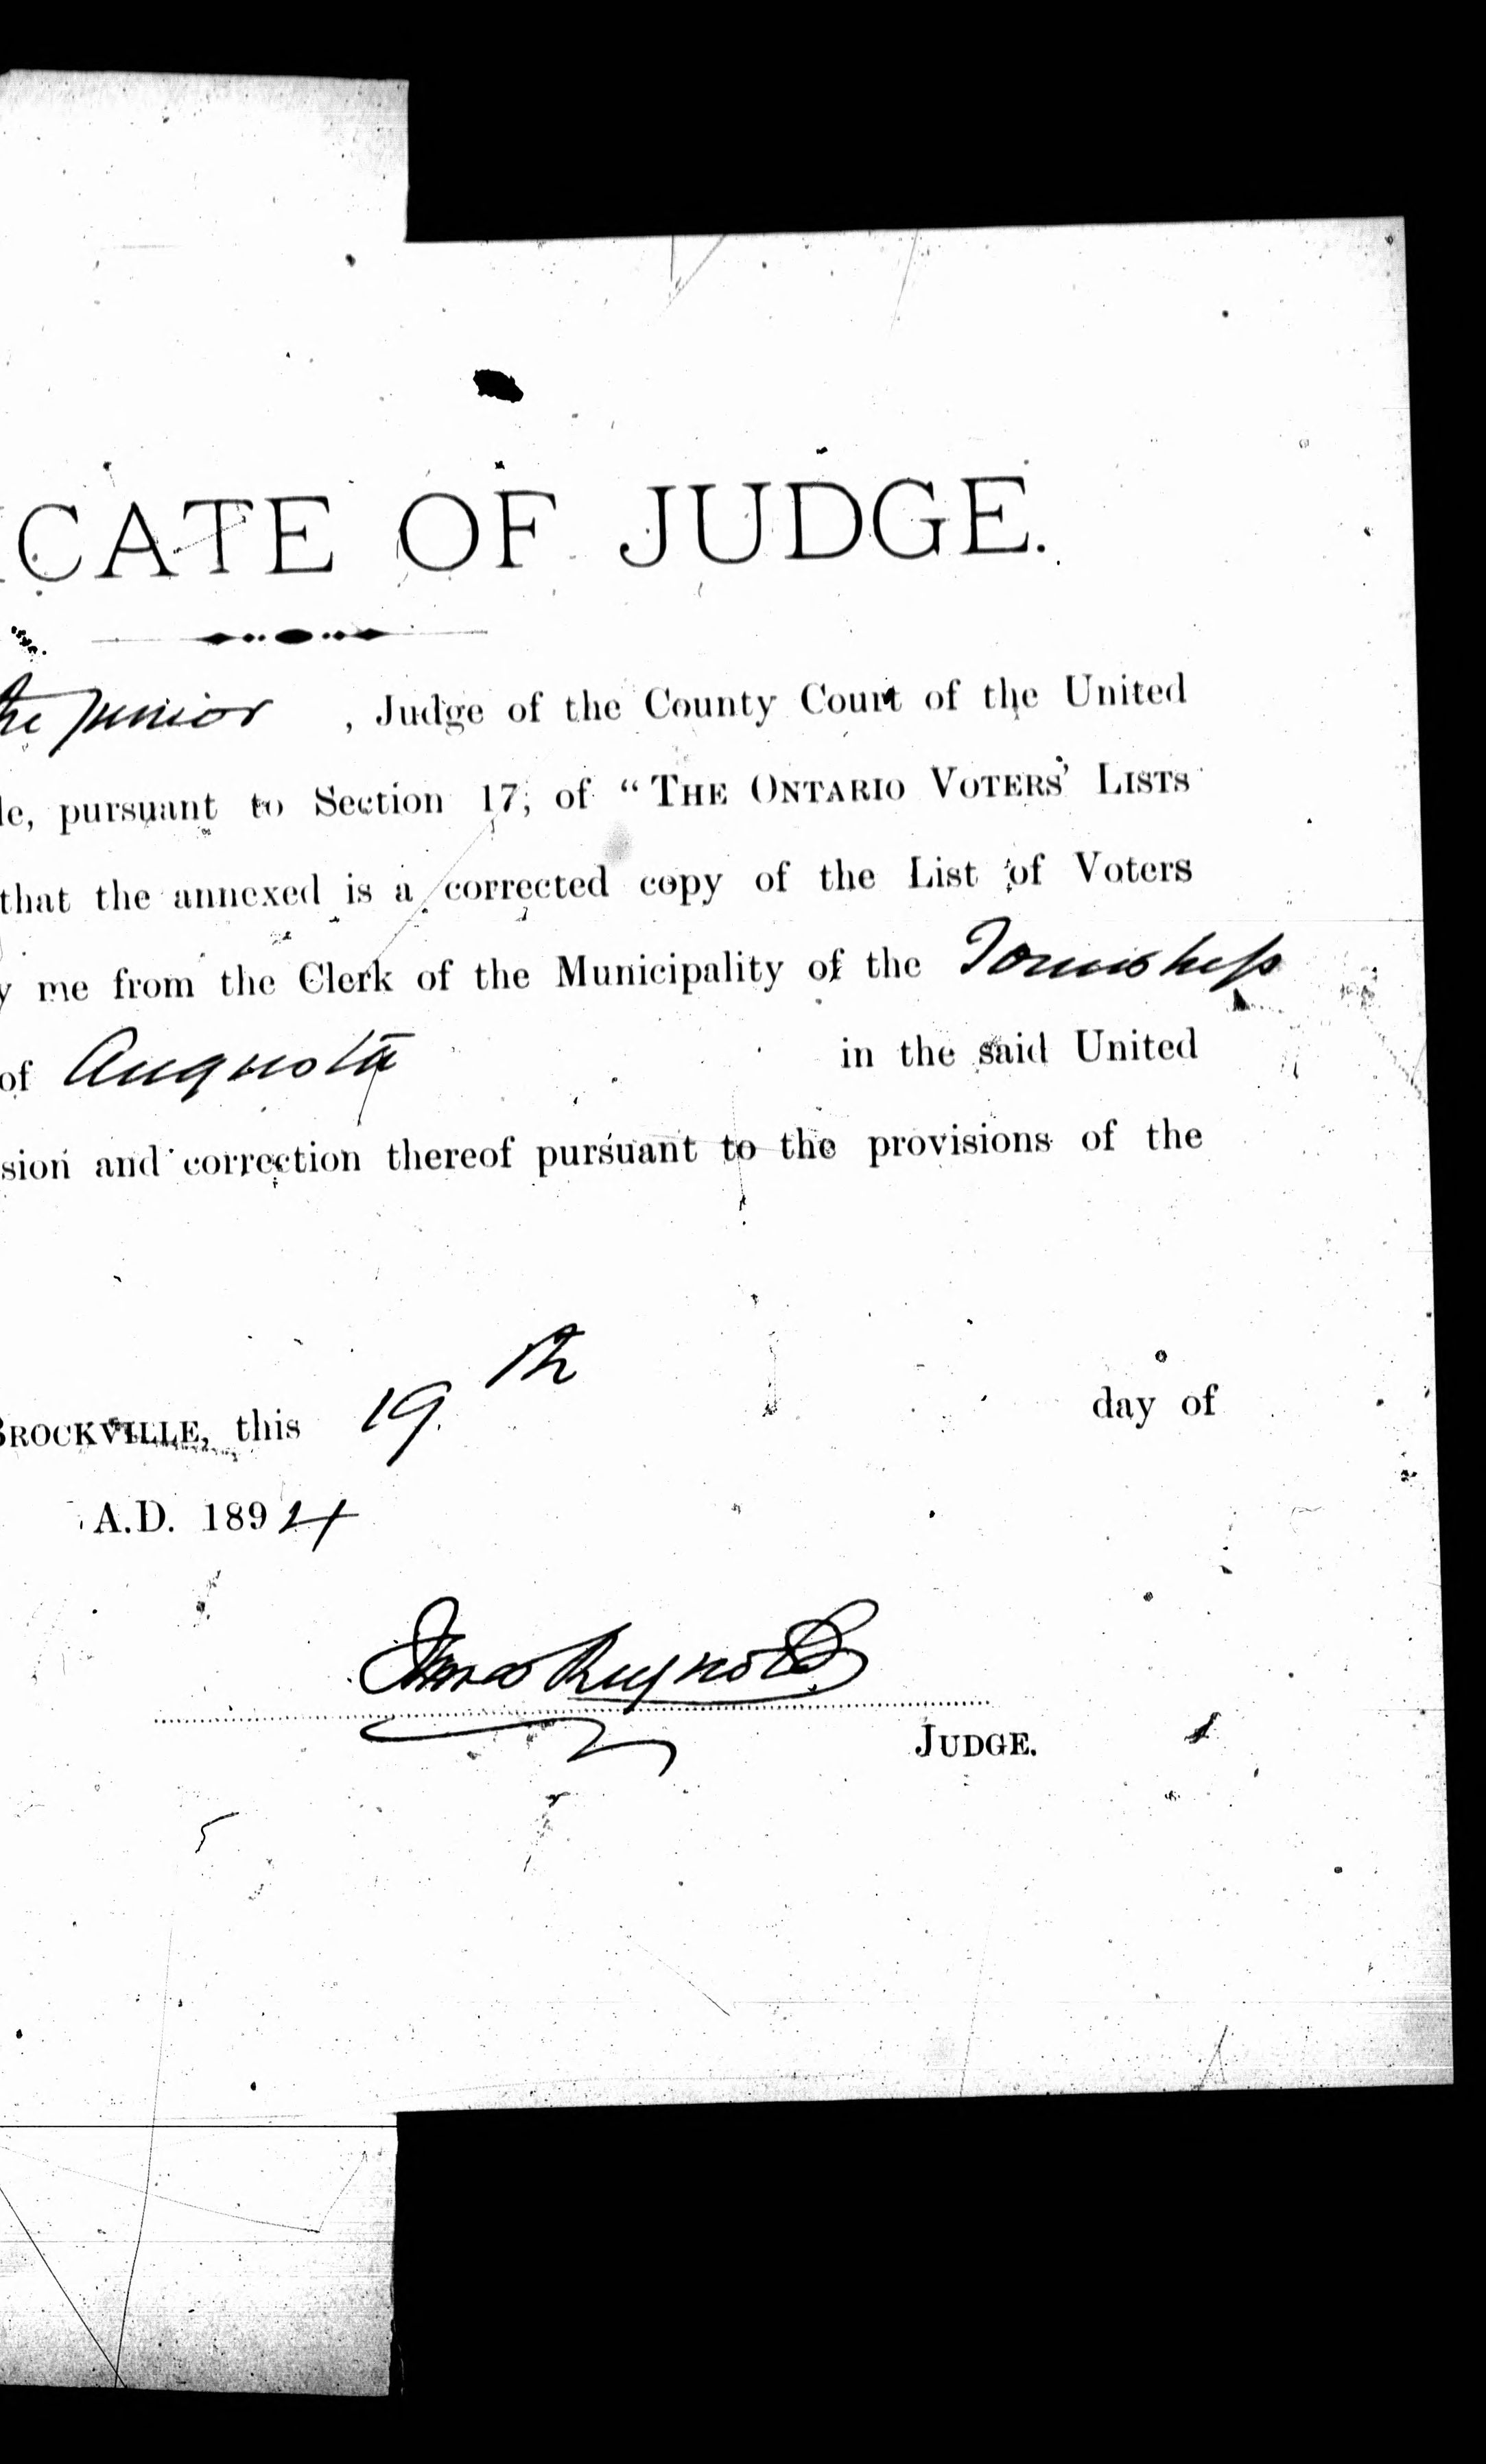 ICATE OF JUDGE.
the junior , Judge of the County Court of the United
le, pursuant to Section 17, of “THE ONTARIO VOTERS’ LISTS
that the annexed is a corrected copy of the List of Voters
y me from the Clerk of the Municipality of the Township
of Augusta in the said United
sion and correction thereof pursuant to the provisions of the
BROCKVILLE, this 19th day of
A.D. 1894
James Reynolds
JUDGE.